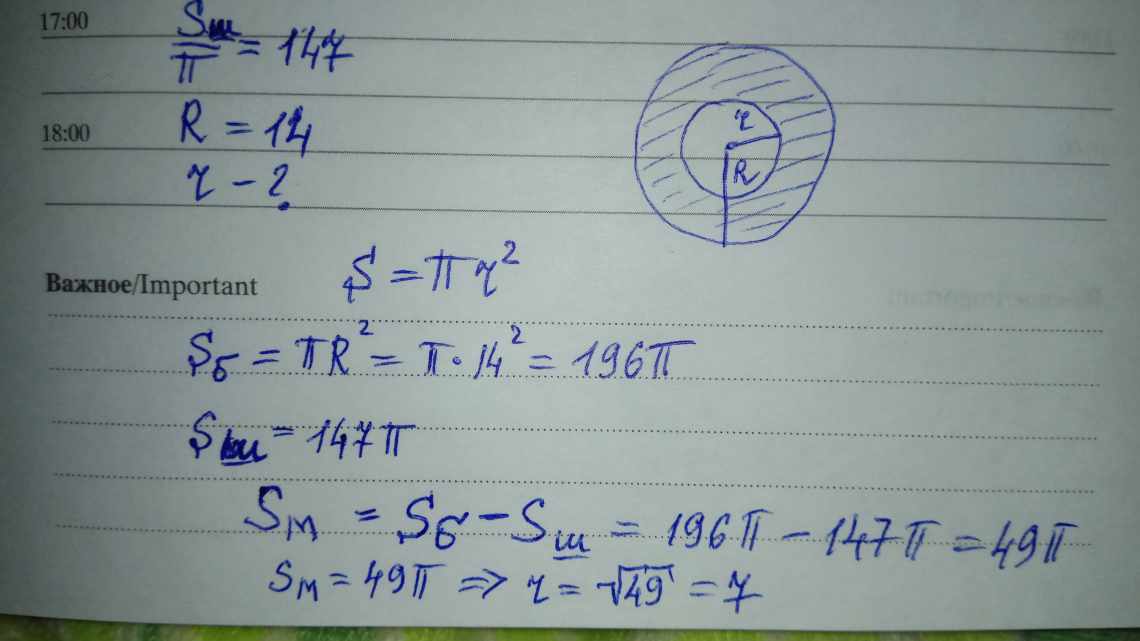 17:00
Sш/π = 147
18:00
R = 14
r - ?
r
R
Важное/Important
S = πr²
Sб = πR² = π·14² = 196π
Sш = 147π
Sм = Sб - Sш = 196π - 147π = 49π
Sм = 49π => r = √49 = 7